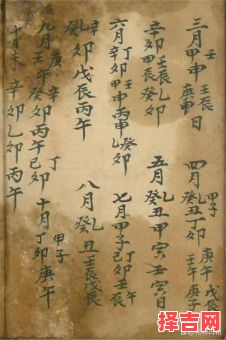 三月甲申 壬 壬辰 庚申 日
辛卯 壬辰 乙卯
甲辰 癸卯
六月 丁卯 壬辰
辛卯 甲申 丙申 乙卯 癸卯
癸卯 戊辰 丙午
九月 庚午 壬午 癸卯 丙午 丁卯 己卯
十月 辛卯 乙卯 丙午
四月 乙丑 丁卯 甲子 庚午 戊辰
壬午 庚子
五月 乙丑 癸丑 甲寅 壬寅 日
七月 甲子 丁卯 己卯 壬午 壬辰
八月 乙丑 癸丑 壬辰 戊辰
十月 丁卯 甲子 庚午
择吉网